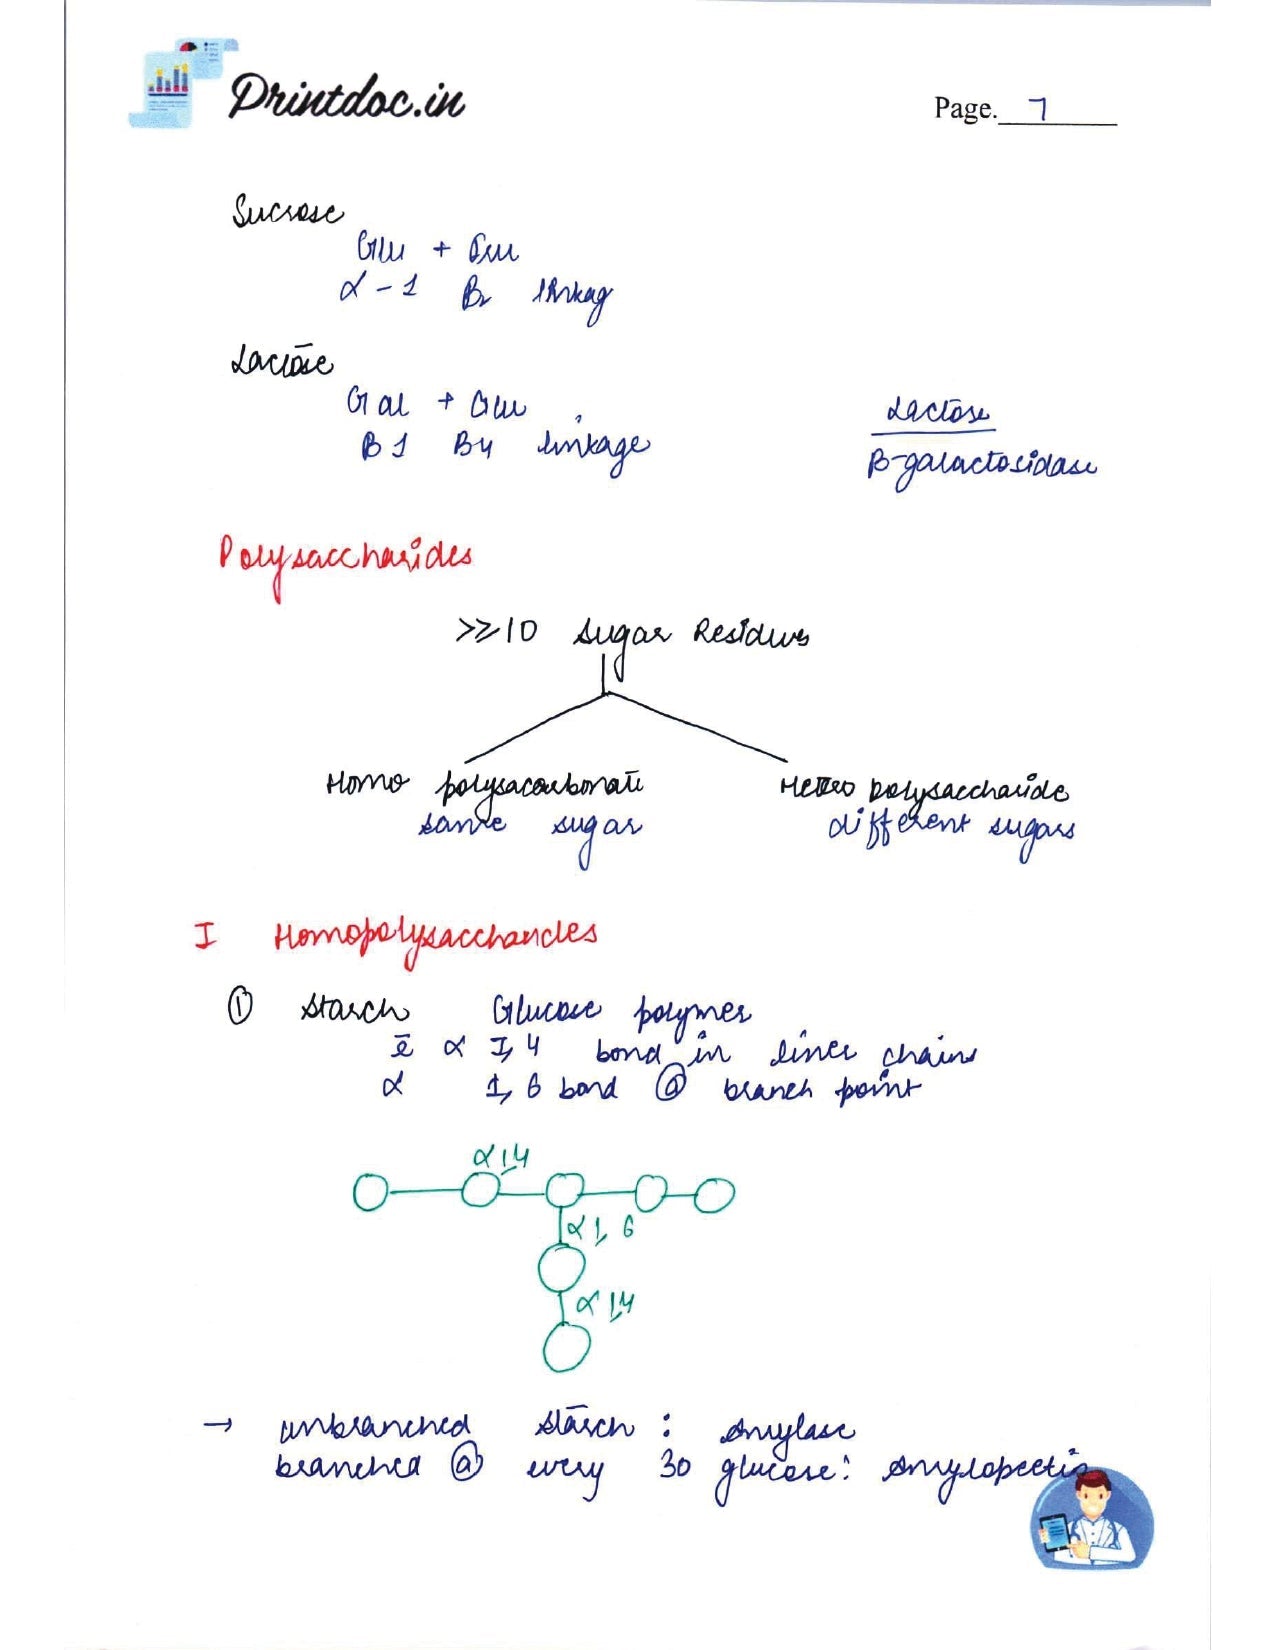 Printdoc.in
Page. 7
Sucrose
Glu + Fru
α - 1 β2 linkag
Lactose
Gal + Glu
B 1 B4 linkage
Lactose
β-galactosidase
Polysaccharides
>>10 Sugar Residues
Homo polysacarbonate
same sugar
Hetero polysaccharide
different sugars
I Homopolysaccharides
① Starch Glucose polymer
c̄ α 1,4 bond in liner chains
α 1,6 bond @ branch point
α 1,4
α 1,6
α 1,4
→ unbranched starch : Amylase
branched @ every 30 glucose : Amylopectin